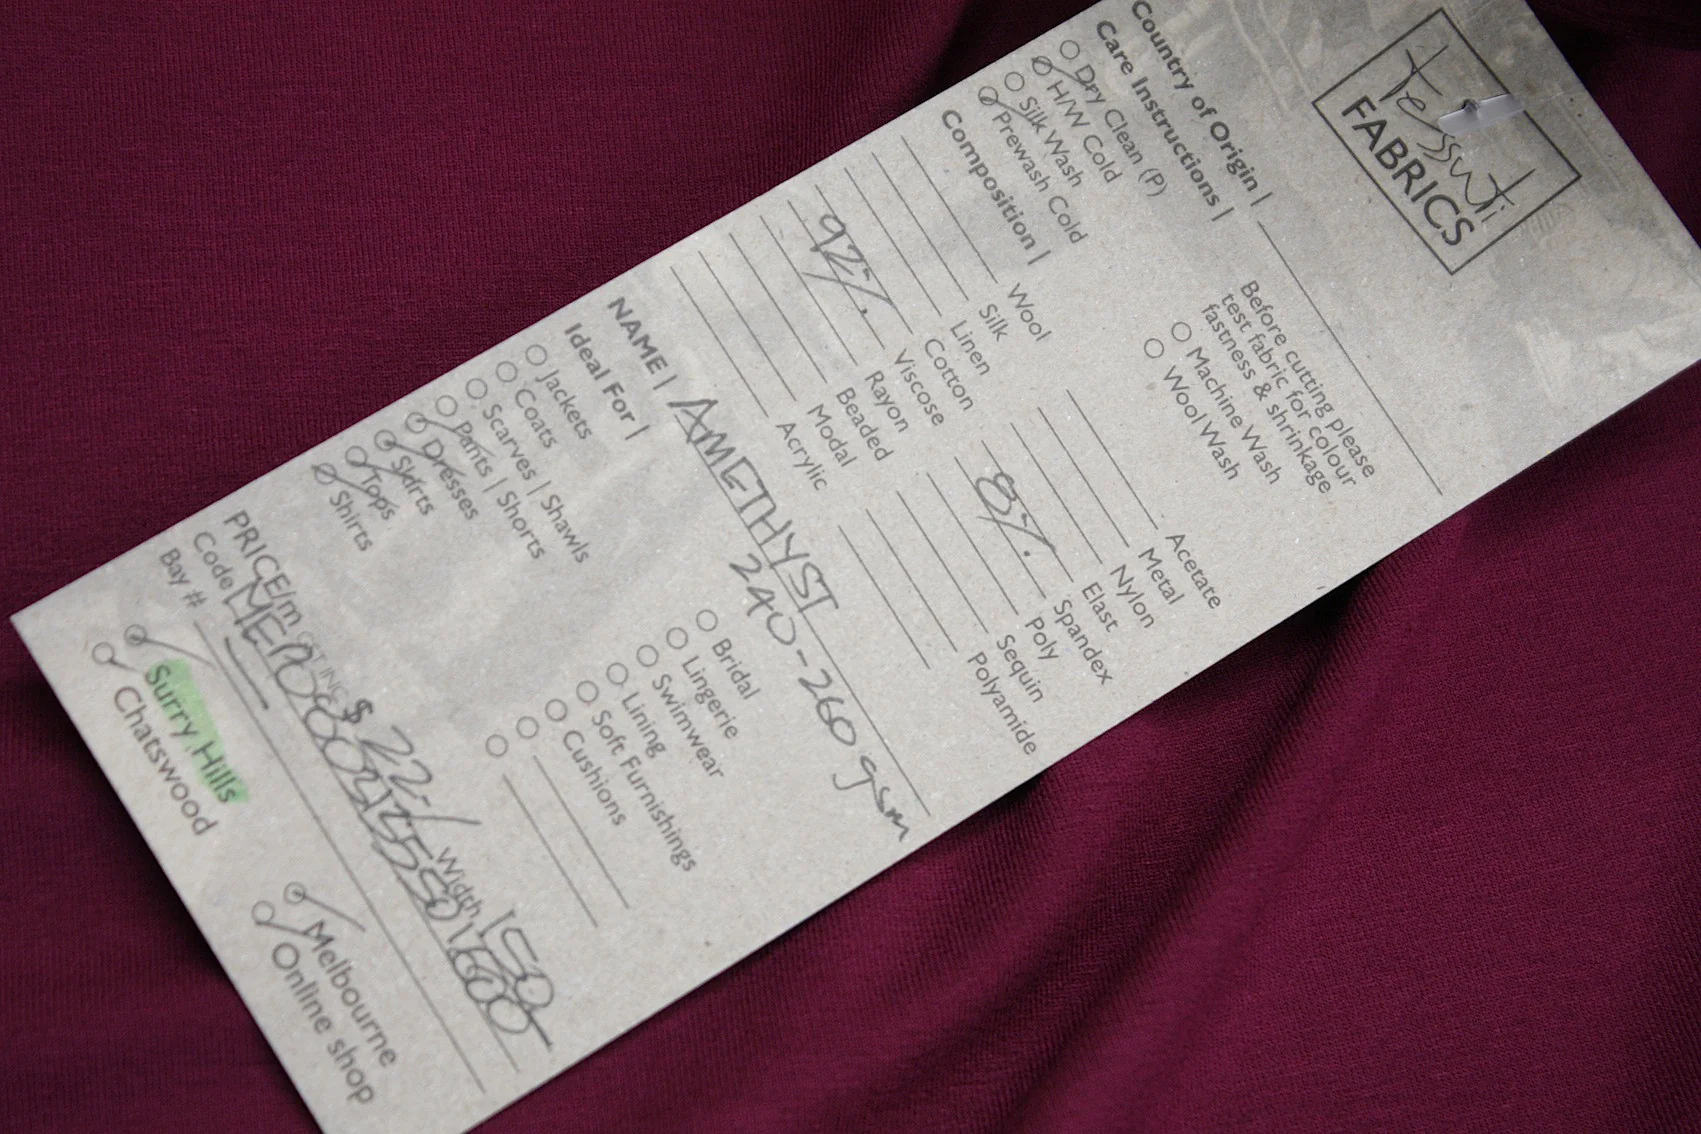 Tessuti
FABRICS
Country of Origin |
Care Instructions |
Dry Clean (P)
H/W Cold
Silk Wash
Prewash Cold
Before cutting please
test fabric for colour
fastness & shrinkage
Machine Wash
Wool Wash
Composition |
Wool
Silk
Linen
Cotton
92% Viscose
Rayon
Beaded
Modal
Acrylic
Acetate
Metal
Nylon
Elast
8% Spandex
Poly
Sequin
Polyamide
NAME | AMETHYST
240-260 gsm
Ideal For |
Jackets
Coats
Scarves | Shawls
Pants | Shorts
Dresses
Skirts
Tops
Shirts
Bridal
Lingerie
Swimwear
Lining
Soft Furnishings
Cushions
PRICE/m GST INC $ 22.- Width 150
Code
Bay #
Surry Hills
Chatswood
Melbourne
Online shop